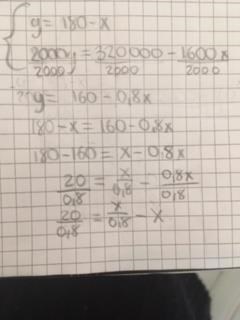 y = 180 - x
2000y/2000 = 320000/2000 - 1600x/2000
y = 160 - 0,8x
180 - x = 160 - 0,8x
180 - 160 = x - 0,8x
20/0,8 = x/0,8 - 0,8x/0,8
20/0,8 = x/0,8 - x